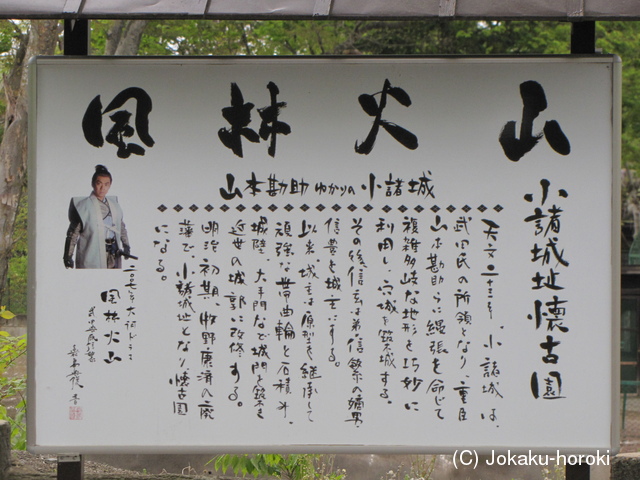 風林火山
山本勘助ゆかりの小諸城
小諸城址懐古園
天文二十三年、小諸城は、
武田氏の所領となり、重臣
山本勘助らに縄張を命じて
複雑多岐な地形を巧妙に
利用し、穴城を築城する。
その後信玄は弟信繁の嫡男
信豊を城主にする。
以来、城は原型を継承して
頑強な帯曲輪と石積み、
城壁、大手門など城門を築き
近世の城郭に改修する。
明治初期、牧野康済の廃
藩で、小諸城址となり、懐古園
になる。
二〇〇七年大河ドラマ
風林火山
(C) Jokaku-horoki